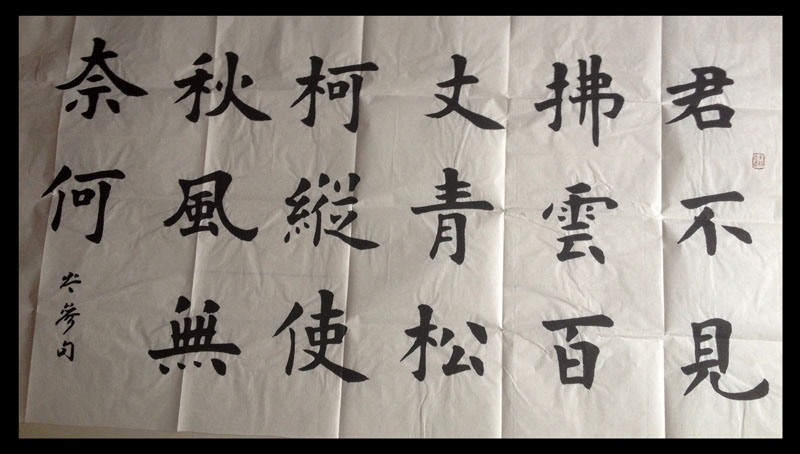 君不見
拂雲百
丈青松
柯縱使
秋風無
奈何
岑參句